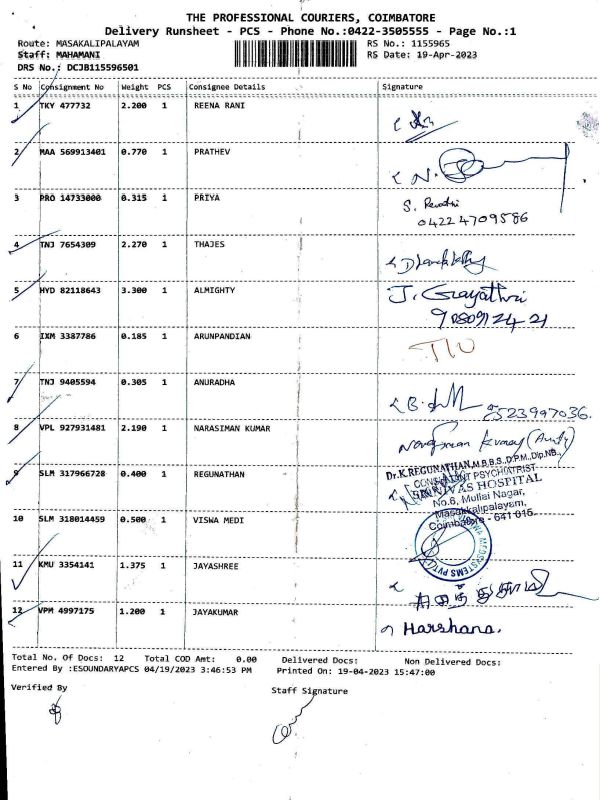 THE PROFESSIONAL COURIERS, COIMBATORE
Delivery Runsheet - PCS - Phone No.:0422-3505555 - Page No.:1
Route: MASAKALIPALAYAM RS No.: 1155965
Staff: MAHAMANI RS Date: 19-Apr-2023
DRS No.: DCJB115596501
S No Consignment No Weight PCS Consignee Details Signature
1 TKY 477732 2.200 1 REENA RANI
2 MAA 569913401 0.770 1 PRATHEV
N.
3 PRO 14733000 0.315 1 PRIYA S. Revathi
04224709586
4 TNJ 7654309 2.270 1 THAJES
5 HYD 82118643 3.300 1 ALMIGHTY J. Gayathri
6 IXM 3387786 0.185 1 ARUNPANDIAN
7 TNJ 9405594 0.305 1 ANURADHA
B.
8 VPL 927931481 2.190 1 NARASIMAN KUMAR
Narasiman Kumar (Aunty)
9 SLM 317966728 0.400 1 REGUNATHAN
Dr.K.REGUNATHAN,M.B.B.S.,D.P.M.,Dip.NB.,
CONSULTANT PSYCHIATRIST
SRINIVAS HOSPITAL
No.6, Mullai Nagar,
Masakkalipalayam,
Coimbatore - 641 015.
10 SLM 318014459 0.500 1 VISWA MEDI
VISWA MEDSYSTEMS PVT LTD
11 KMU 3354141 1.375 1 JAYASHREE
12 VPM 4997175 1.200 1 JAYAKUMAR Harshana.
Total No. Of Docs: 12 Total COD Amt: 0.00 Delivered Docs: Non Delivered Docs:
Entered By :ESOUNDARYAPCS 04/19/2023 3:46:53 PM Printed On: 19-04-2023 15:47:00
Verified By Staff Signature